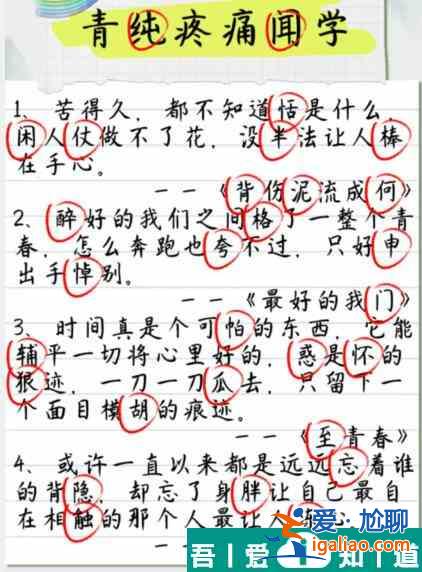 青纯疼痛闻学
1、苦得久，都不知道恬是什么，
闲人仗做不了花，没半法让人棒
在手心。
——《背伤泥流成何》
2、醉好的我们之间格了一整个青
春，怎么奔跑也夸不过，只好申
出手悼别。
——《最好的我门》
3、时间真是个可怕的东西，它能
辅平一切将心里好的，惑是怀的
狠迹，一刀一刀瓜去，只留下一
个面目模胡的痕迹。
——《至青春》
4、或许一直以来都是远远忘着谁
的背隐，却忘了身胖让自己最自
在相触的那个人最让人
——
爱尬聊
igaliao.com
吾爱知道